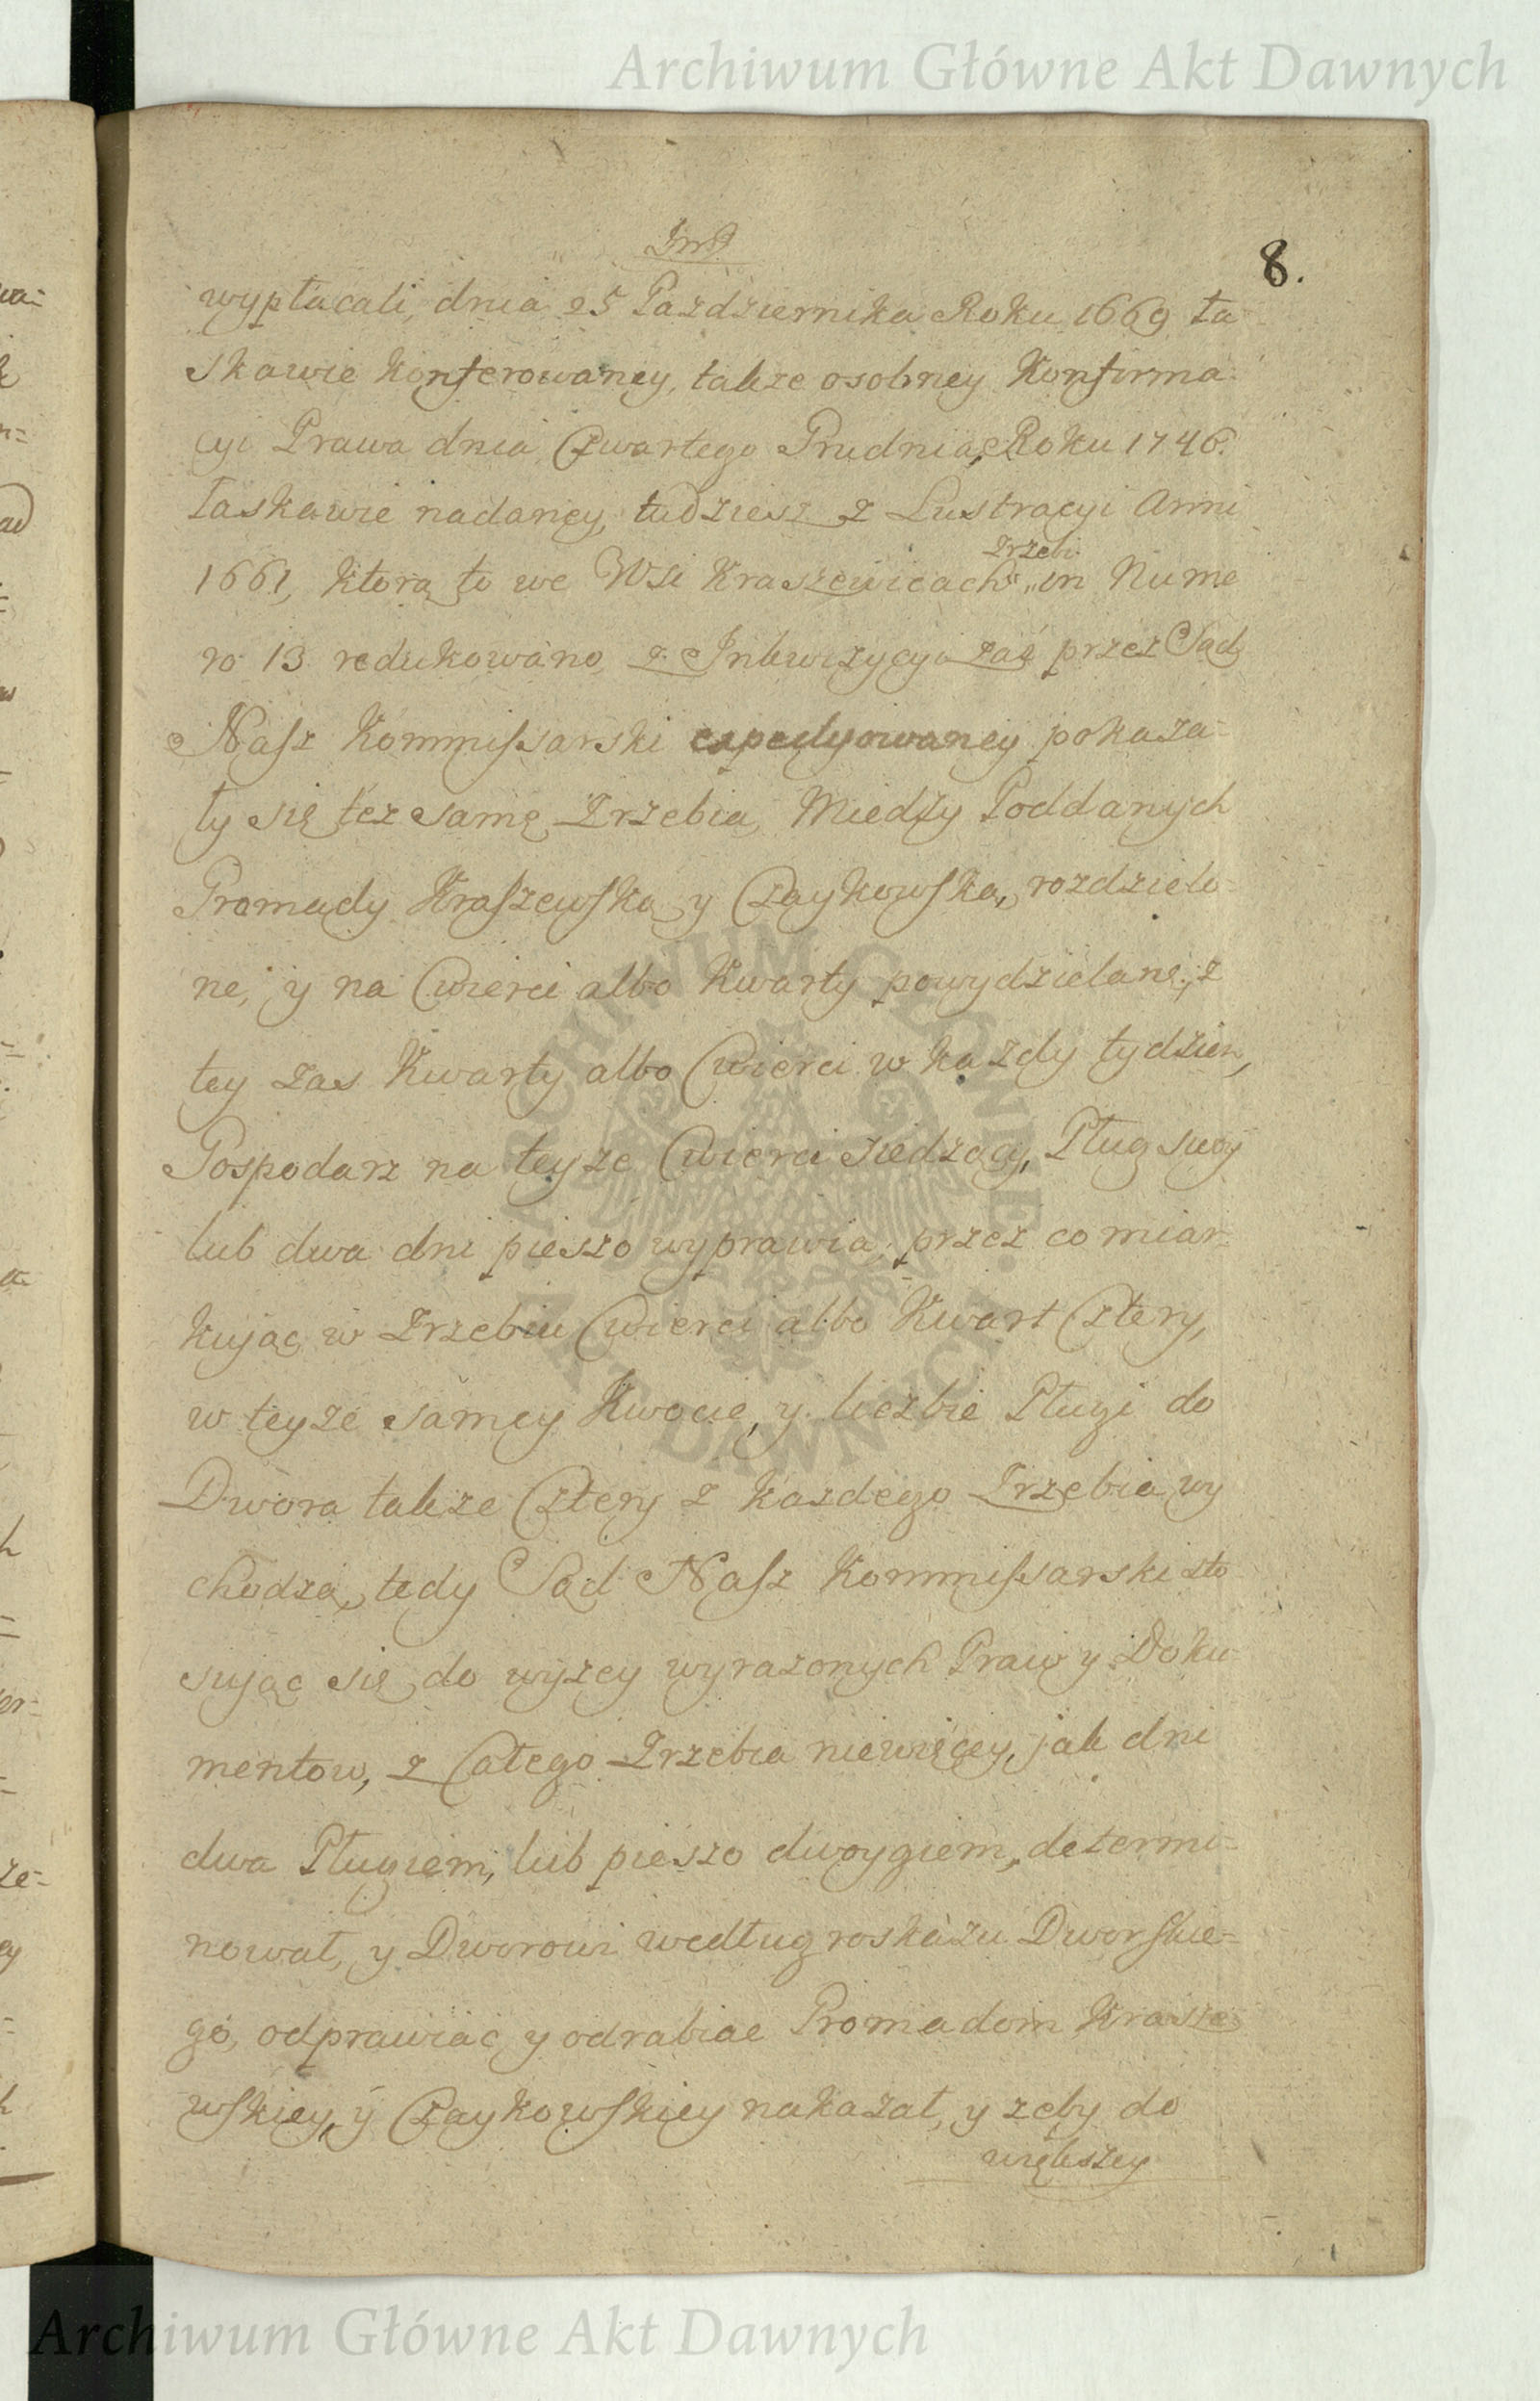 Archiwum Główne Akt Dawnych
8.
wypłacali, dnia 25 Pazdziernika Roku 1669 ła
skawie konferowaney, także osobney Konfirma-
cyi Prawa dnia Czwartego Grudnia Roku 1746.
łaskawie nadaney, tudziesz z Lustracyi Anni
Zrzebi
1661, ktorą to we Wsi Kraszewicach in Nume
ro 13 redukowano, z Inkwizycyi zaś przez Sąd
Nasz Kommissarski expedyowaney pokaza-
ły się też samę Zrzebia, Miedzy Poddanych
Gromady Kraszewską y Czaykowską, rozdzielo-
ne, y na Cwierci albo Kwarty powydzielane, z
tey zas Kwarty albo Cwierci w każdy tydzien,
Gospodarz na teyze Cwierci siedzący, Pług swoy
lub dwa dni pieszo wyprawia, przez co miar-
kując w Zrzebiu Cwierci albo Kwart Cztery,
w teyże samey Kwocie, y liczbie Pługi do
Dwora także Cztery z każdego Zrzebia wy
chodzą, tedy Sąd Nasz Kommissarski sto
sując się do wyżey wyrazonych Praw y Doku-
mentow, z Całego Zrzebia niewięcey, jak dni
dwa Pługiem, lub pieszo dwoygiem, determi-
nował, y Dworowi według roskazu Dworskie-
go, odprawiać y odrabiać Gromadom Krasze
wskiey, y Czaykowskiey nakazał, y zeby do
większey
Archiwum Główne Akt Dawnych
ARCHIWUM GŁÓWNE AKT DAWNYCH